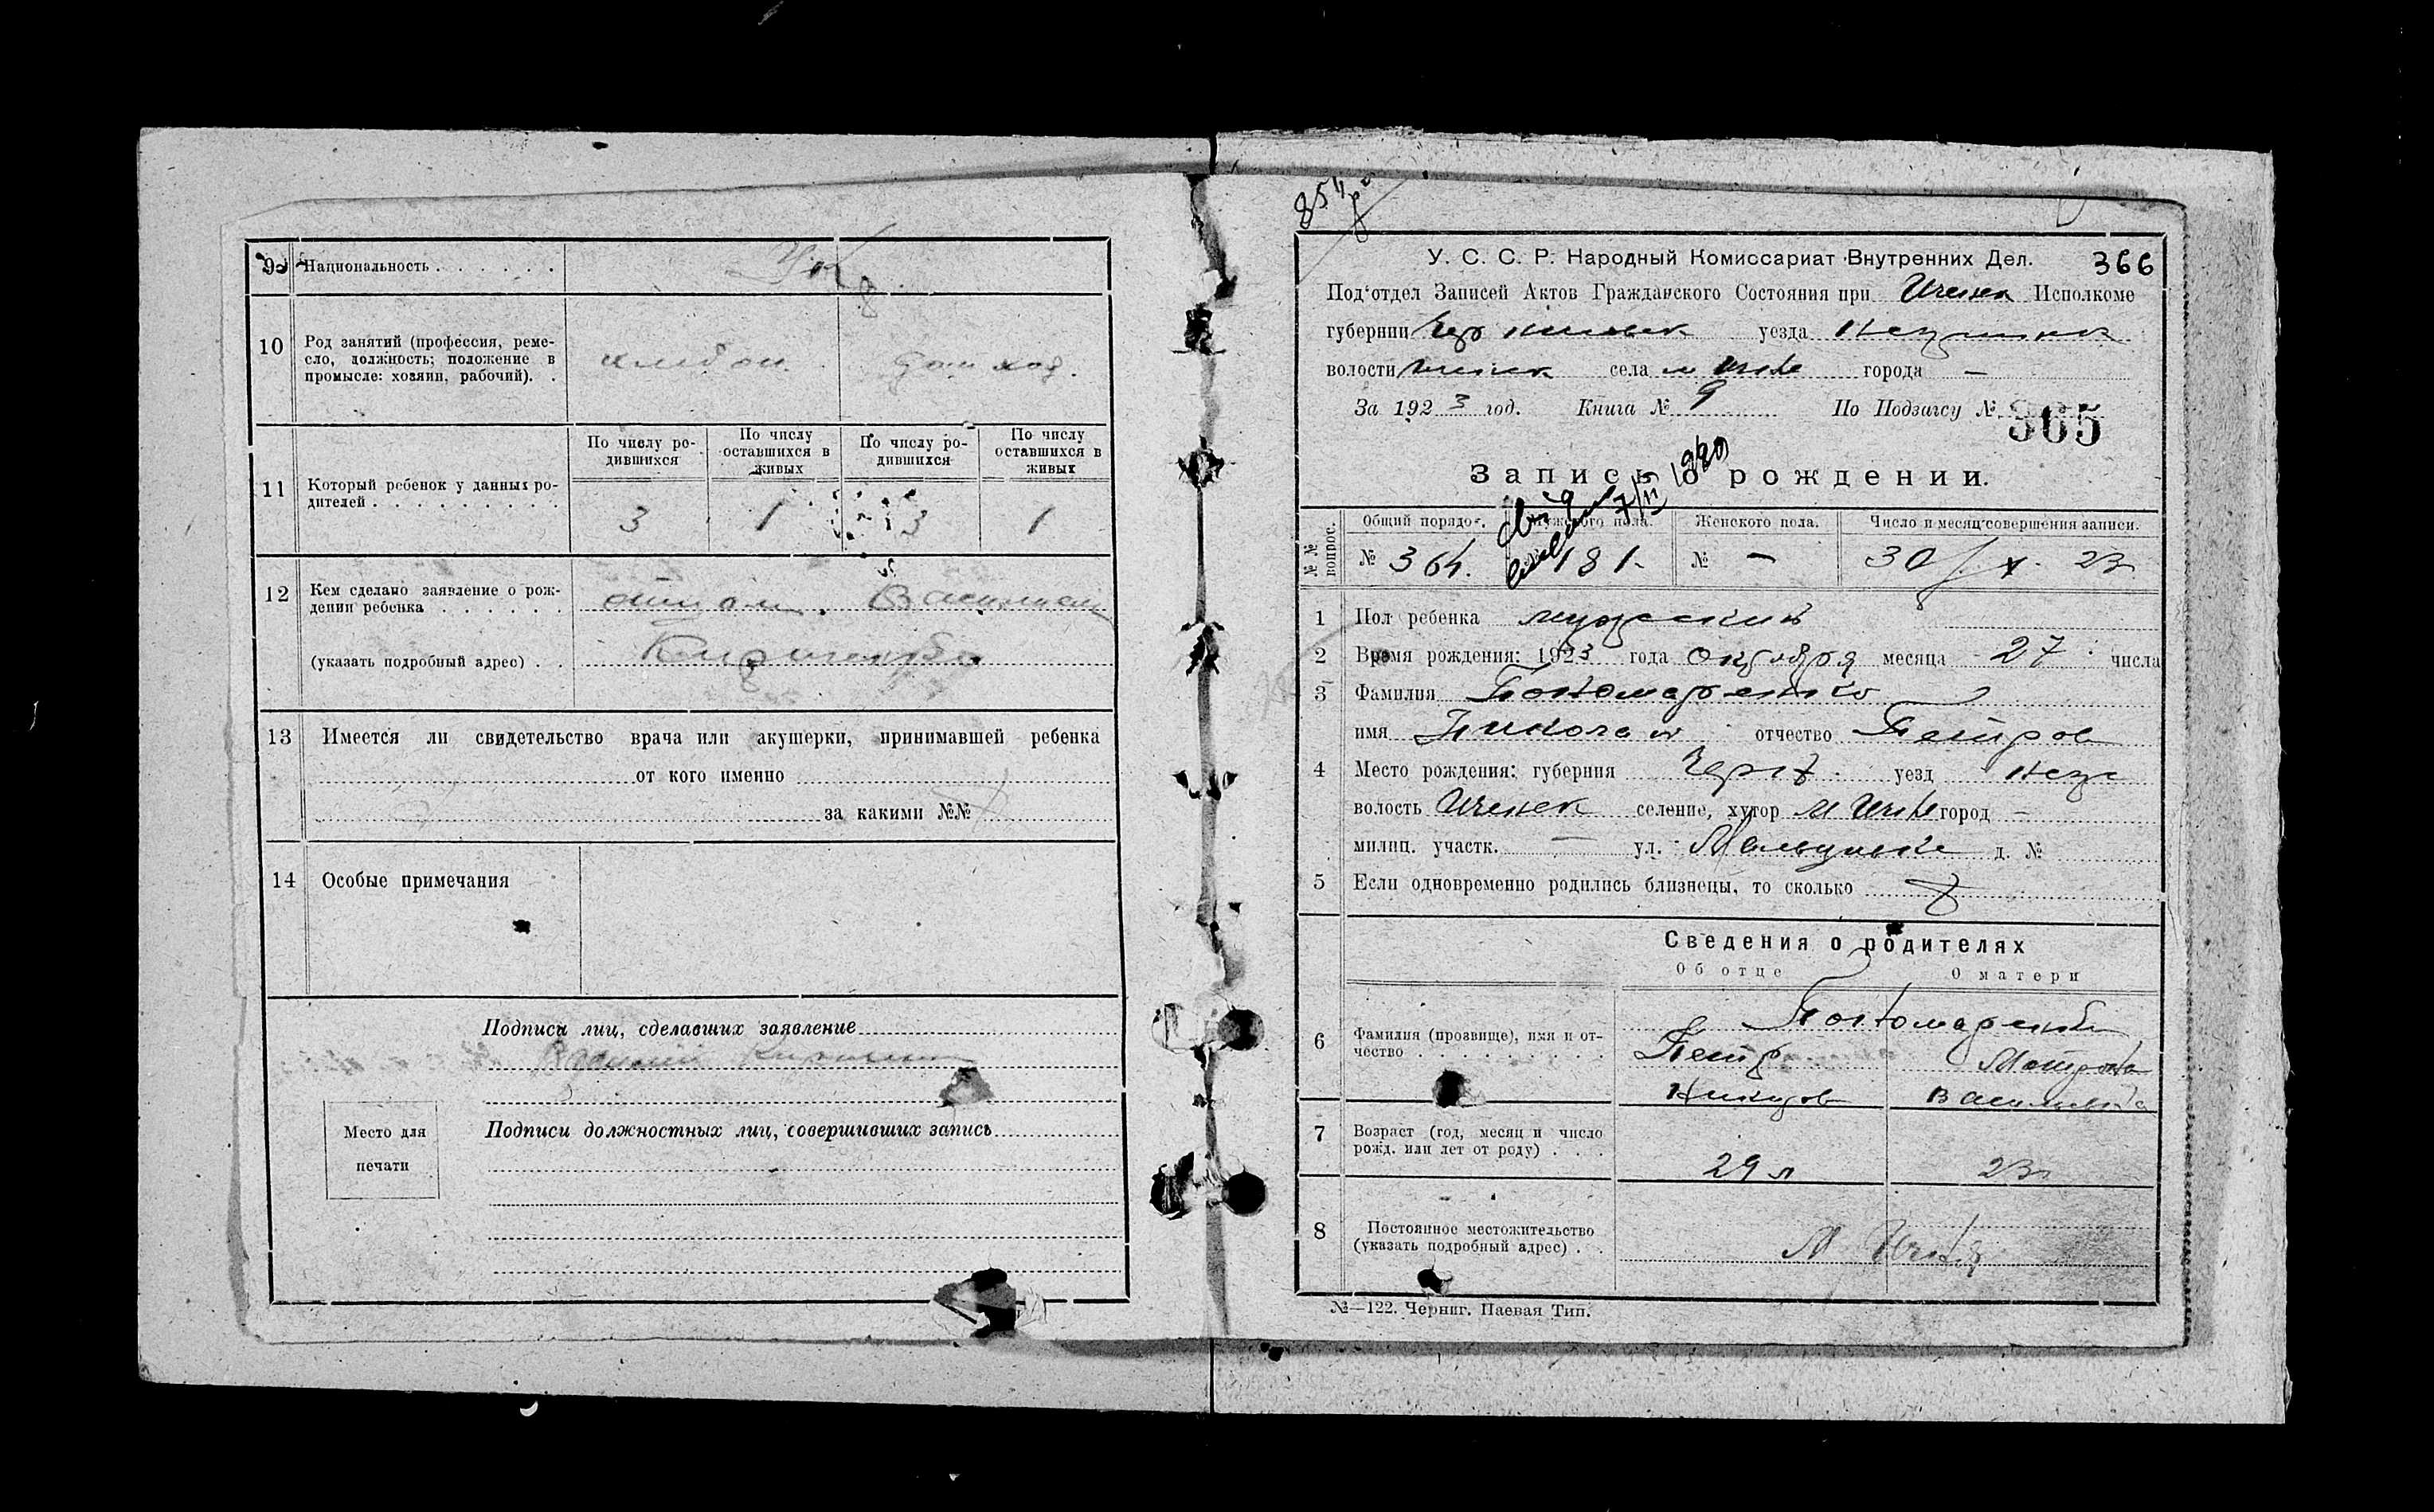 9 Национальность . . . . . . Ук
10 Род занятий (профессия, реме-
сло, должность; положение в
промысле: хозяин, рабочий). . хлебоп. дом хоз.
11 Который ребенок у данных ро-
дителей . . . . . . . . .
По числу ро-
дившихся
По числу
оставшихся в
живых
По числу ро-
дившихся
По числу
оставшихся в
живых
3 1 3 1
12 Кем сделано заявление о рож-
дении ребенка . . . . . .
(указать подробный адрес) . .
13 Имеется ли свидетельство врача или акушерки, принимавшей ребенка
от кого именно
за какими №№
14 Особые примечания
Подписи лиц, сделавших заявление
Василий
Место для
печати
Подписи должностных лиц, совершивших запись
У. С. С. Р. Народный Комиссариат Внутренних Дел. 366
Под‘отдел Записей Актов Гражданского Состояния при Ичнен Исполкоме
губернии уезда
волости села города —
За 1923 год. Книга № 9 По Подзагсу № 365
Запись о рождении.
№№ вопрос.
Общий порядо . Мужского пола. Женского пола. Число и месяц совершения записи.
№ 364. № 181. № — 30/X. 23
1 Пол ребенка мужский
2 Время рождения: 1923 года октября месяца 27 числа
3 Фамилия Пономаренко
имя Николай отчество Петров
4 Место рождения: губерния Черн. уезд Неж
волость Ичнек селение, хутор м город —
милиц. участк. — ул. д. №
5 Если одновременно родились близнецы, то сколько
Сведения о родителях
Об отце О матери
6 Фамилия (прозвище), имя и от-
чество . . . . . . . . .
Пономаренко
Петр Мотрона
Василиевна
7 Возраст (год, месяц и число
рожд. или лет от роду) . . . 29 л 23
8 Постоянное местожительство
(указать подробный адрес) . . М
№—122. Черниг. Паевая Тип.